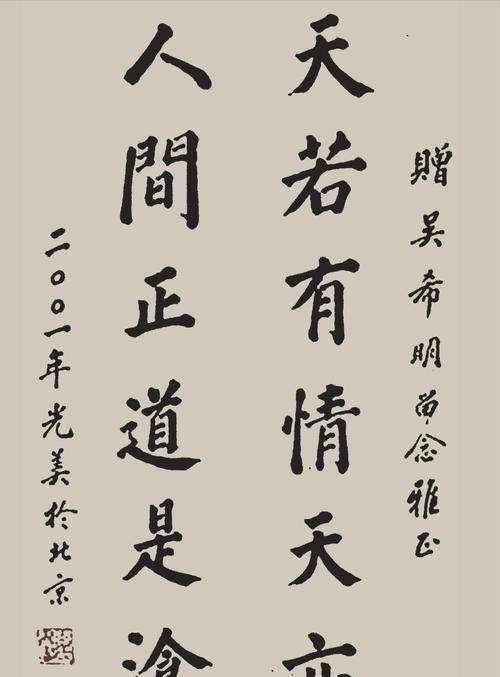 贈吴希明留念雅正
天若有情天亦
人間正道是滄
二〇〇一年光美於北京